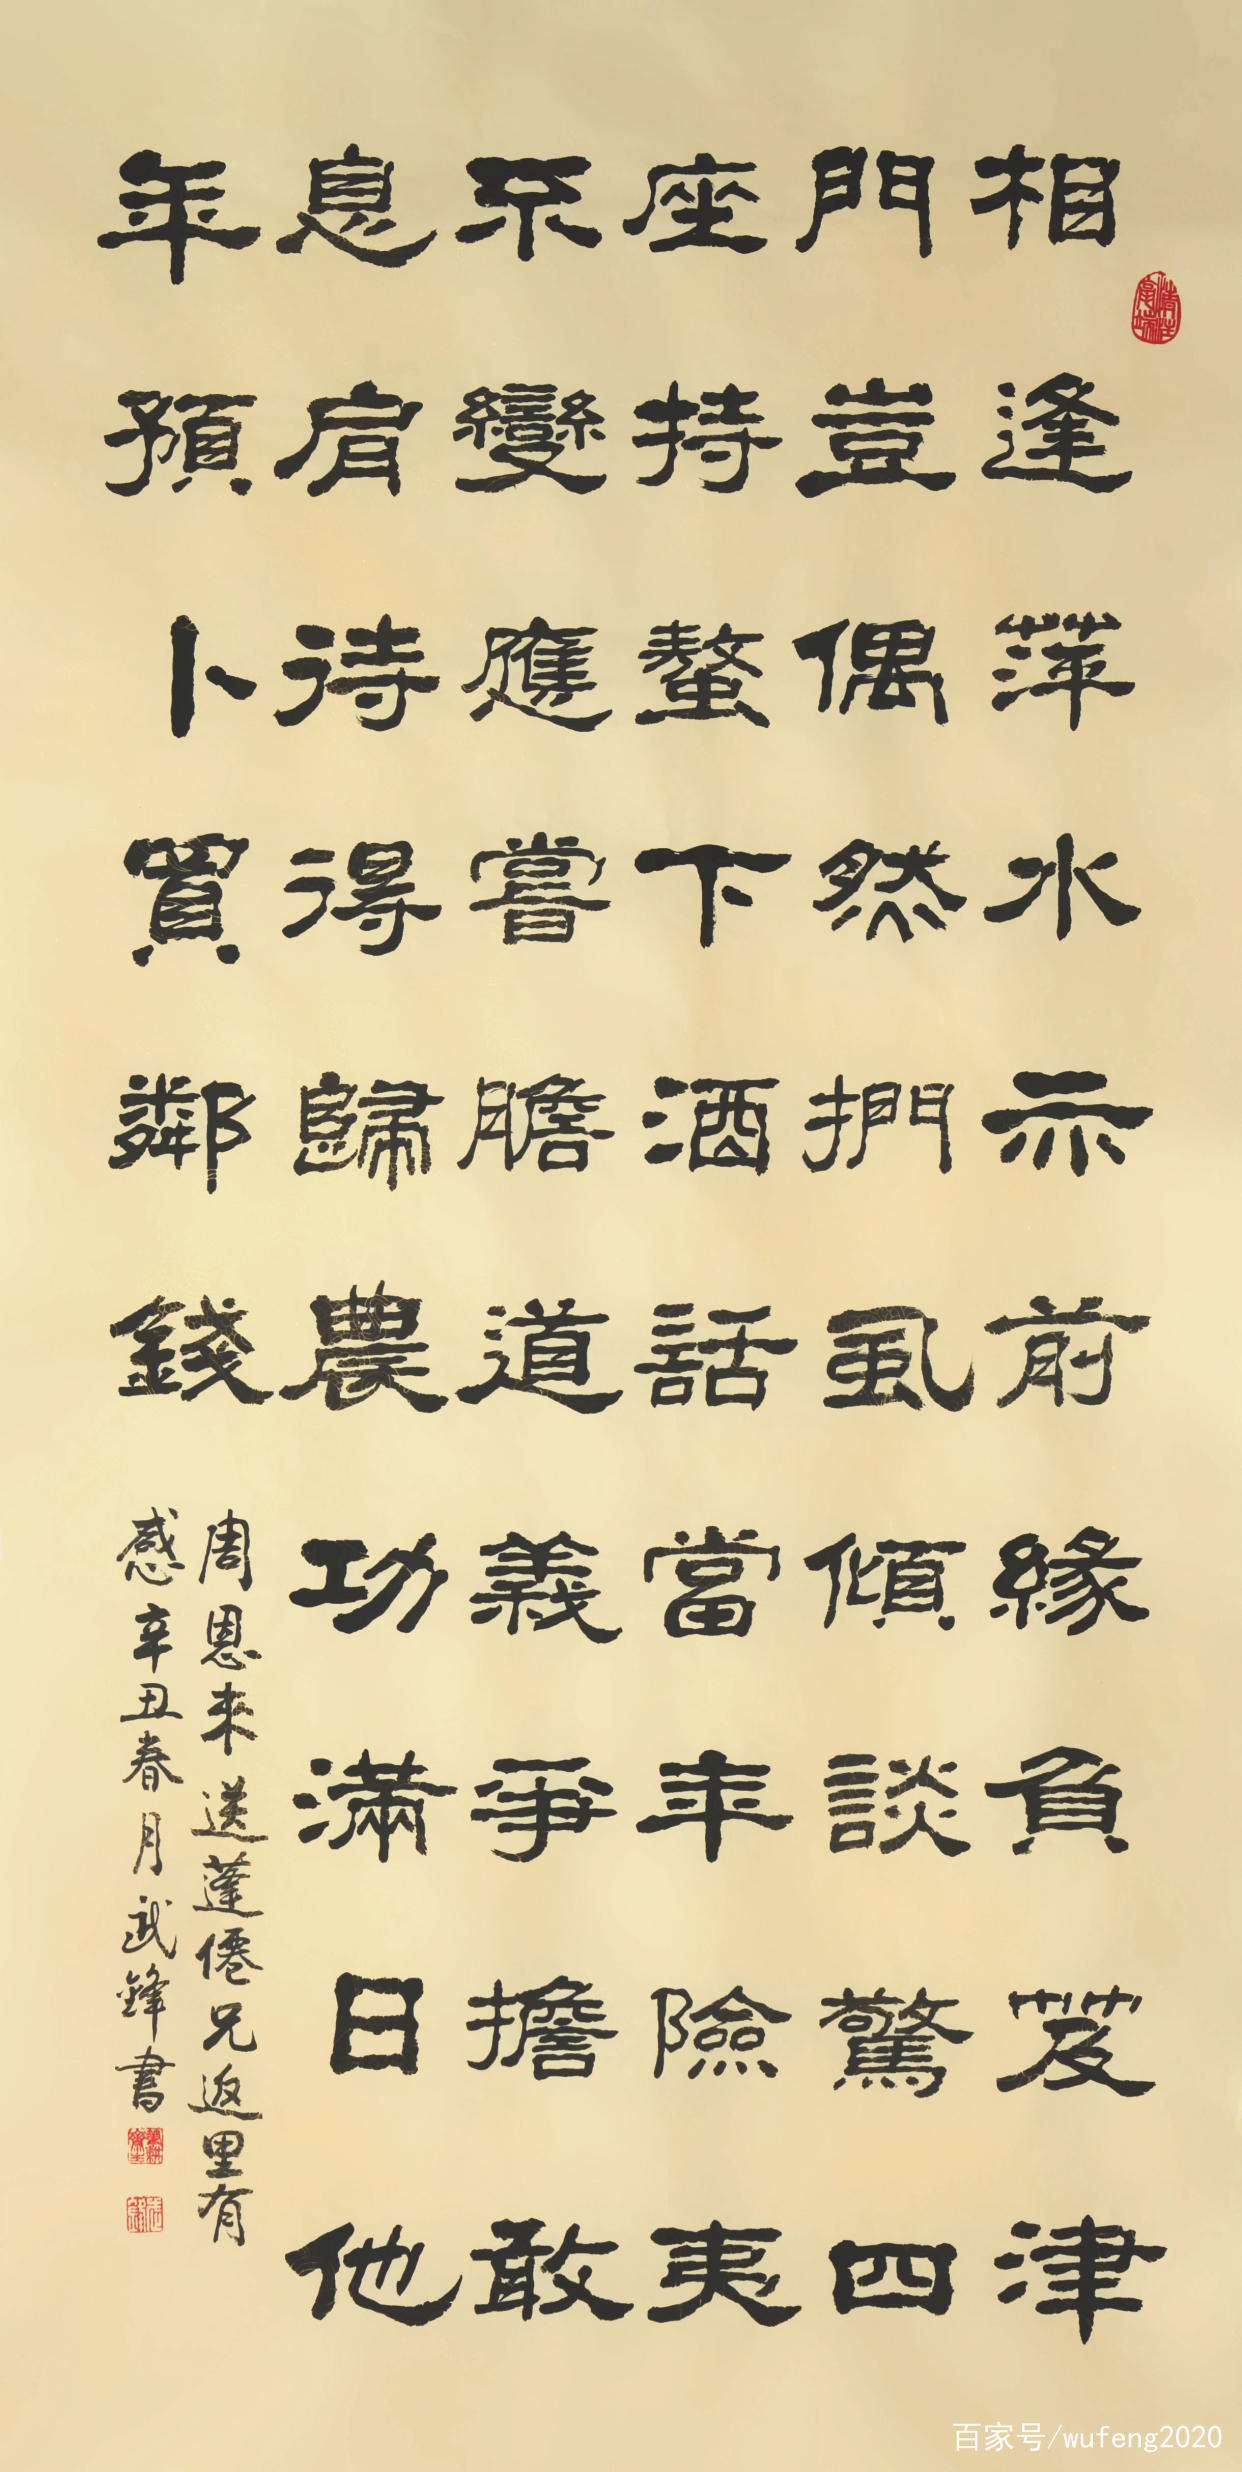 相逢萍水亦前緣負芨津
門豈偶然捫虱傾談驚四
座持螯下酒話當年險夷
不變應嘗膽道義爭擔敢
息肩待得歸農功滿日他
年預卜買鄰錢
周恩来送蓬僊兄返里有
感辛丑春月武鋒書
百家号/wufeng2020